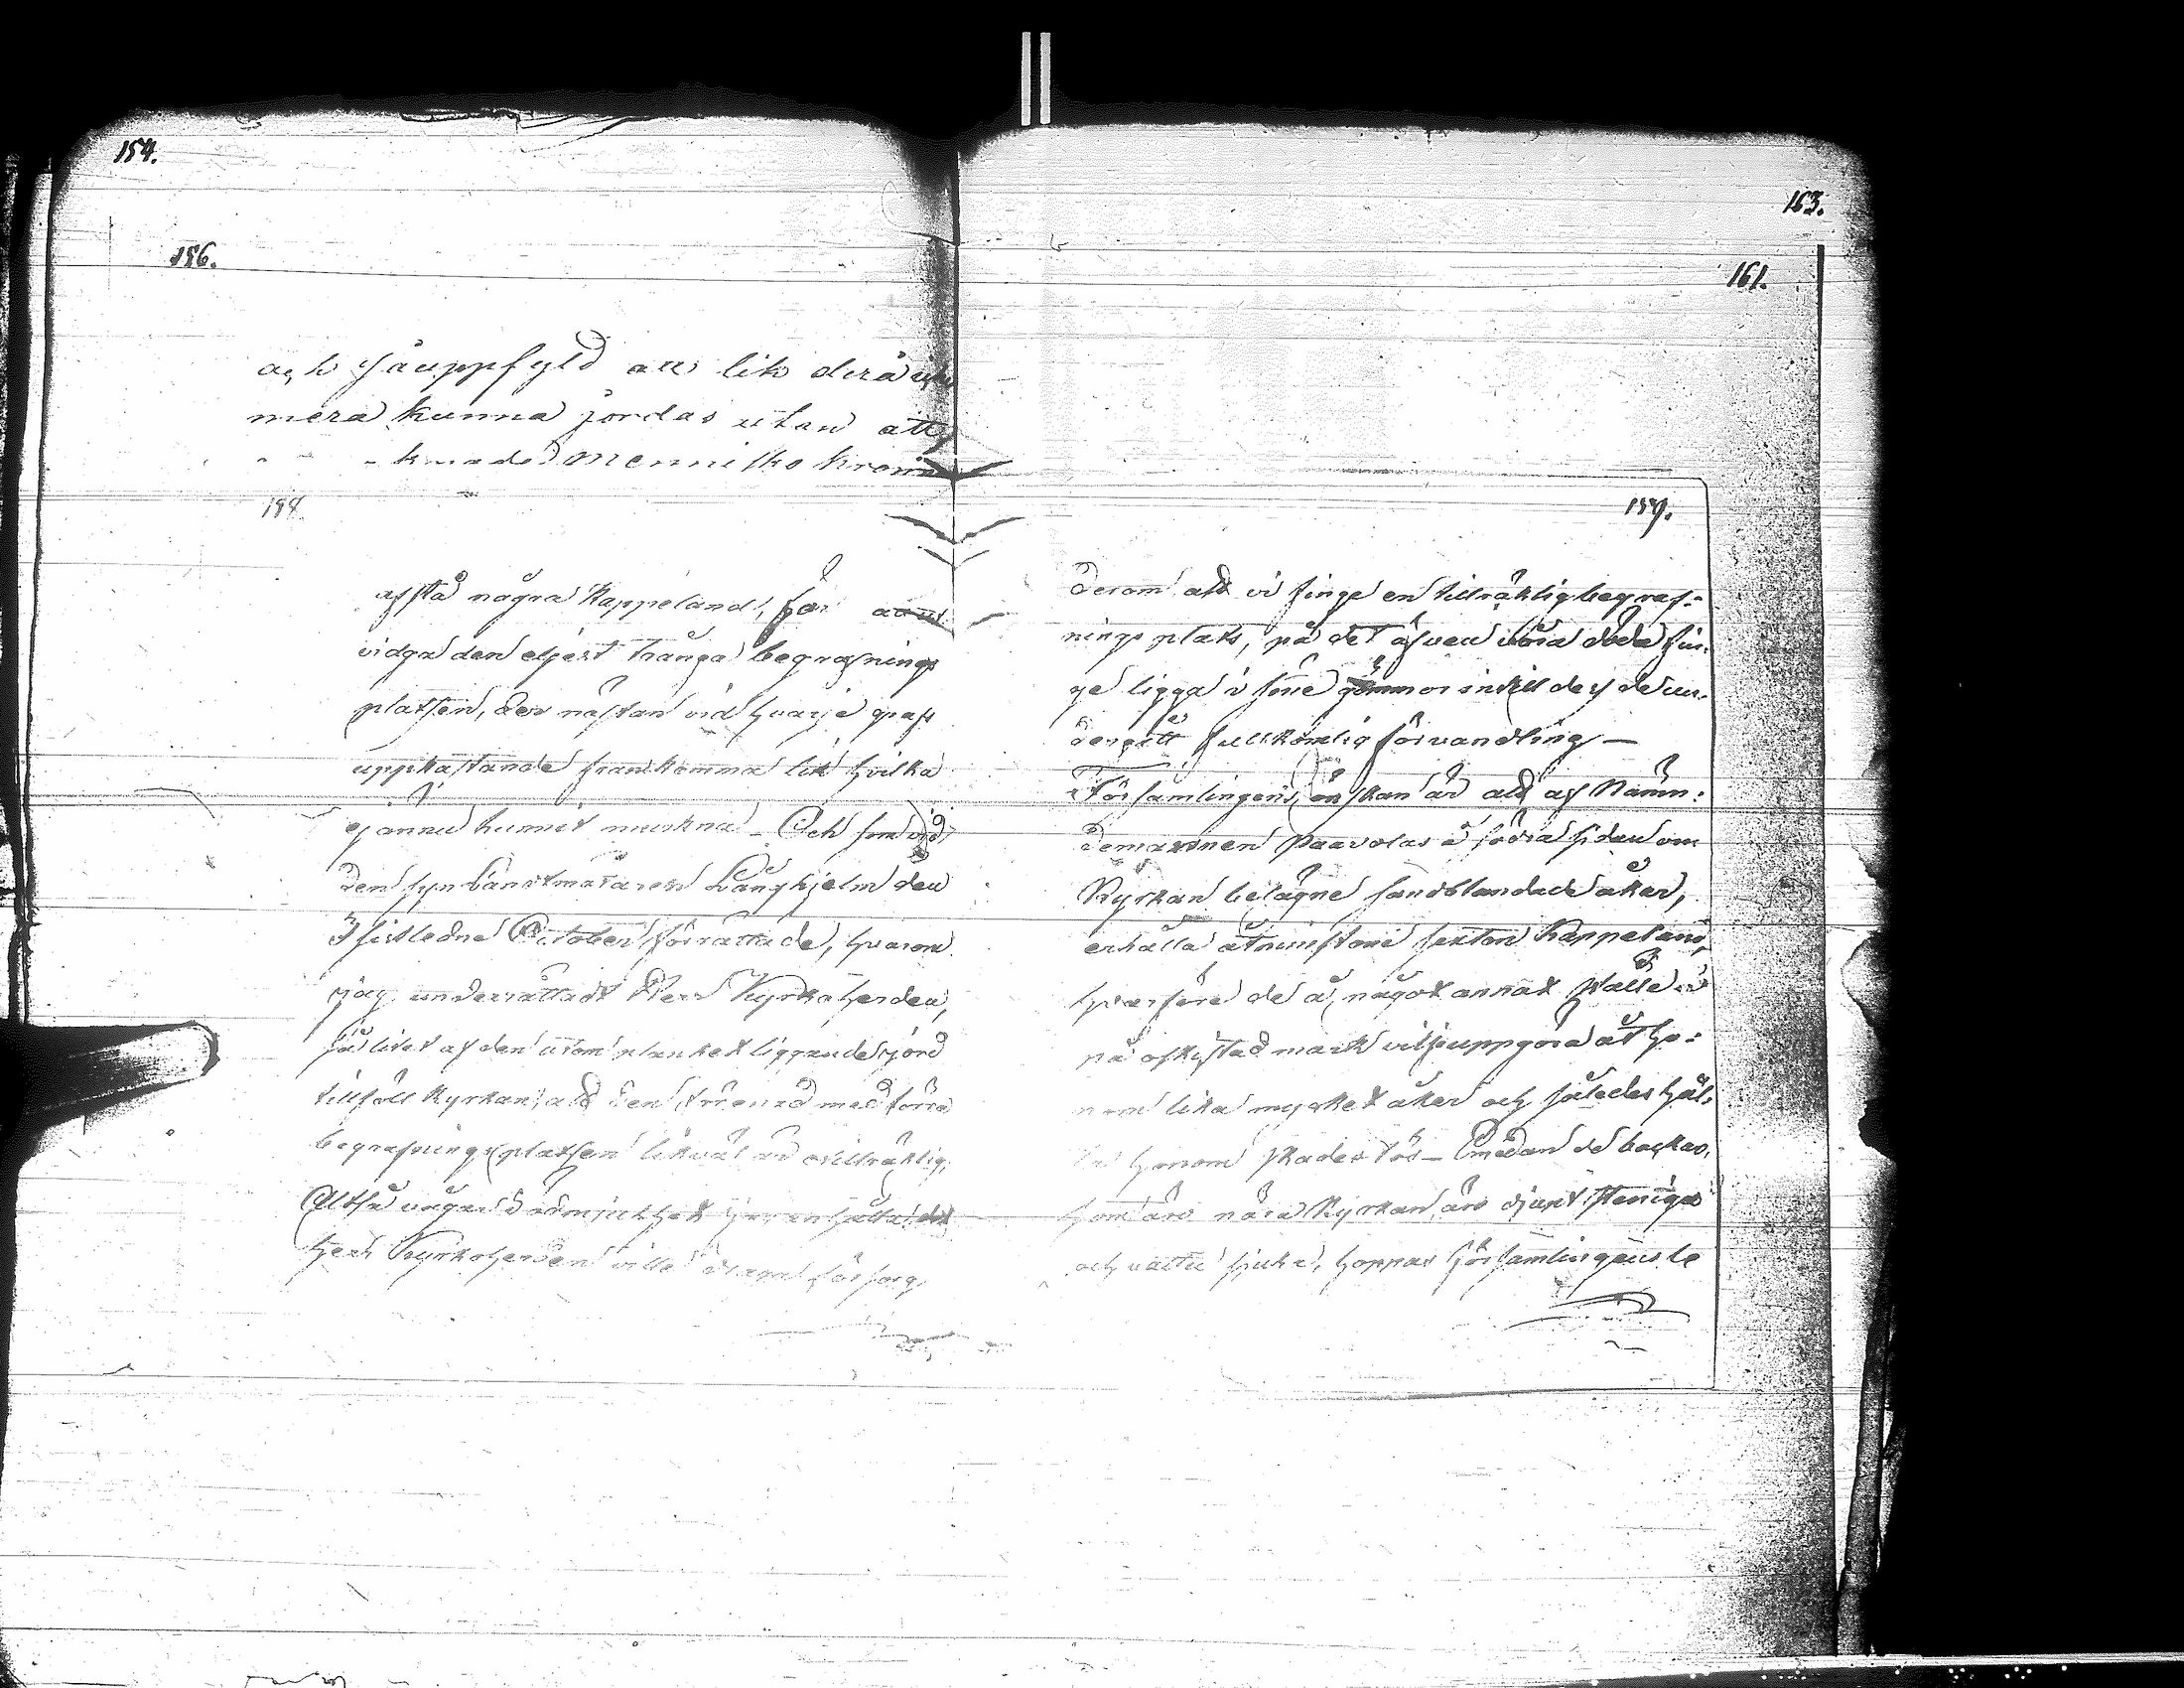 154.
156.
och så uppfyld att lik derå icke
mera kunna jordas utan att
menniskokropp
158.
afstå några Kappeland, för att ut
vidga den eljest trånga begrafnings
platsen, der nästan vid hvarje grafs
uppkastande framkomma lik hvilka
ej ännu hunnit muskna – Och som vid
den syn Landtmätaren Långhjelm den
3 sistledne October förrättade, hvarom
jag underrättadt Herr Kyrkoherden,
så litet af den utom planket liggande jord
tillföll Kyrkan, att den förenad med förra
begrafningsplatsen likväl är otillräklig;
Altså vågar i ödmjukhet jag anhålla det
Herr Kyrkoherden ville draga försorg
163.
161.
159.
derom att vi finge en tillräklig begraf-
nings plats, på det äfven våra döda fin-
ge ligga i sine gömmor intill des de un-
dergått fullkomlig förvandling —
Församlingens önskan är att af Nämn-
demannen Paavolas å södra sidan om
Kyrkan belägne sandblandade åker,
erhålla åtminstone sexton Kappeland,
hvarföre de å något annat ställe
på oskiftad mark vilja uppgöra åt ho-
nom lika mycket åker och således hål-
la honom skadeslös – Emedan de backar,
som äro nära Kyrkan, äro djupt steniga
och vattu sjuka, hoppas församlingens le